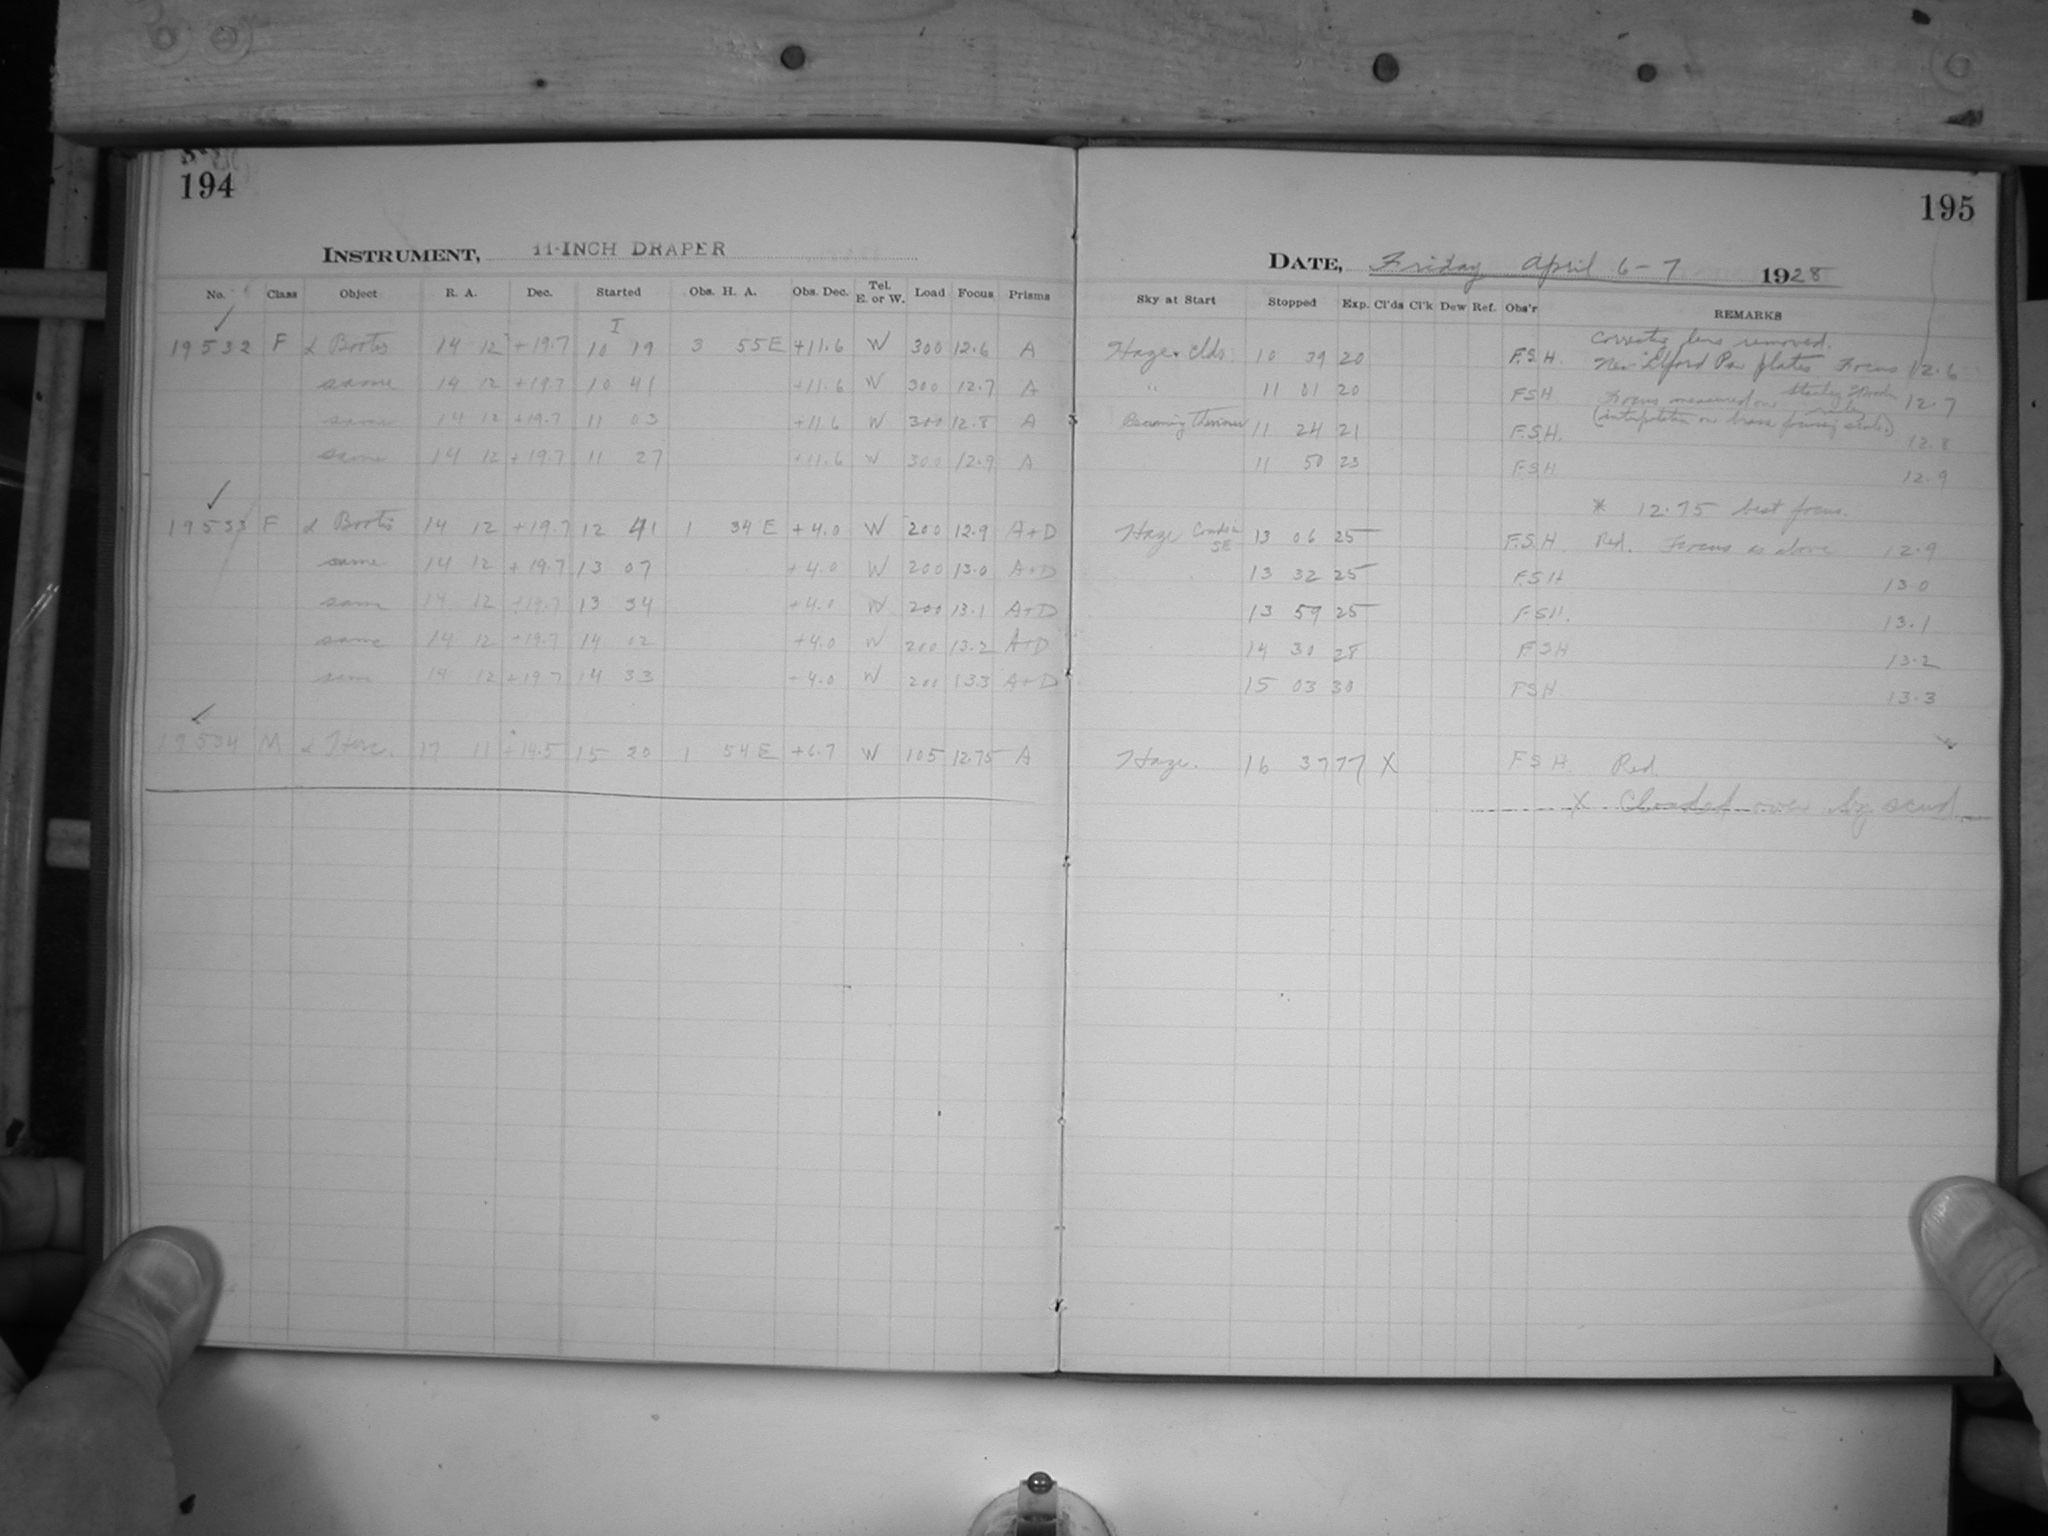 194
INSTRUMENT, 11-INCH DRAPER
No. Class Object R. A. Dec. Started Obs. H. A. Obs. Dec. Tel. E. or W. Load Focus Prisms
I
19532 F α Bootis 14 12 +19.7 10 19 3 55E +11.6 W 300 12.6 A
same 14 12 +19.7 10 41 +11.6 W 300 12.7 A
same 14 12 +19.7 11 03 +11.6 W 300 12.8 A
same 14 12 +19.7 11 27 +11.6 W 300 12.9 A
19533 F α Bootis 14 12 +19.7 12 41 1 34 E +4.0 W 200 12.9 A+D
same 14 12 +19.7 13 07 +4.0 W 200 13.0 A+D
same 14 12 +19.7 13 34 +4.0 W 200 13.1 A+D
same 14 12 +19.7 14 02 +4.0 W 200 13.2 A+D
same 14 12 +19.7 14 33 +4.0 W 200 13.3 A+D
19534 M α Herc. 17 11 +14.5 15 20 1 54 E +6.7 W 105 12.75 A
195
DATE, Friday April 6-7 1928
Sky at Start Stopped Exp. Cl'ds Cl'k Dew Ref. Obs'r REMARKS
Corrector lens removed.
Haze + clds. 10 39 20 F.S.H. New Ilford Pan plates Focus 12.6
" 11 01 20 FSH Focus measured on Stanley ruler 12.7
Becoming Thinner 11 24 21 F.S.H. (interpolation on brass focusing scale) 12.8
11 50 23 F.S.H 12.9
* 12.75 best focus.
Haze SE 13 06 25 F.S.H. Red. Focus as above 12.9
13 32 25 F.S.H 13.0
13 59 25 F.S.H. 13.1
14 30 28 F.S.H 13.2
15 03 30 FSH. 13.3
Haze. 16 37 77 X F.S.H. Red.
X Clouded over by scud.